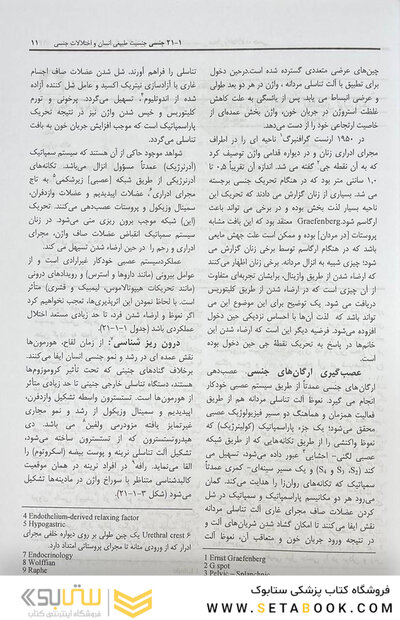 ۱-۲۱ جنسی جنسیت طبیعی انسان و اختلالات جنسی
۱۱
چین‌های عرضی متعددی گسترده شده است.درحین دخول
برای تطبیق با آلت تناسلی مردانه ، واژن در هر دو بعد طولی
و عرضی انبساط می یابد. پس از یائسگی به علت کاهش
غلظت استروژن در جریان خون، واژن بخش عمده‌ای از
خاصیت ارتجاعی خود را از دست می‌دهد.
در ۱۹۵۰ ارنست گرافنبرگ¹ ناحیه ای را در اطراف
مجرای ادراری زنان و در دیواره قدامی واژن توصیف کرد
که به آن نقطه جی² گفته می شد. اندازه آن تقریباً ۰٫۵ تا
۱٫۰ سانتی متر بود که در هنگام تحریک جنسی برجسته
می شد. بسیاری از زنان گزارش می دادند که تحریک این
ناحیه بسیار لذت بخش بوده و در برخی می تواند باعث
ارگاسم شود.Graefenberg معتقد بود که این بافت مشابه
پروستات [در مردان] بوده و ممکن است علت جهش مایعی
باشد که در هنگام ارگاسم توسط برخی زنان گزارش می
شود؛ چیزی شبیه به انزال مردانه. برخی زنان اظهار می‌کنند
که ارضاء شدن از طریق واژینال، برایشان تجربه‌ای متفاوت
از آن چیزی است که در ارضاء شدن از طریق کلیتوریس
دریافت می شود. یک توضیح برای این موضوع این می
تواند باشد که لذت آن‌ها با احساس نزدیکی حین دخول
افزوده می‌شود. فرضیه دیگر این است که ارضاء شدن این
خانم‌ها در پاسخ به تحریک نقطهٔ جی حین دخول بوده
است.
عصب‌گیری ارگان‌های جنسی عصب‌دهی
ارگان‌های جنسی عمدتاً از طریق سیستم عصبی خودکار
انجام می گیرد. نعوظ آلت تناسلی مردانه هم از طریق
فعالیت همزمان و هماهنگ دو مسیر فیزیولوژیک عصبی
محقق می‌شود؛ یک جزء پاراسمپاتیک (کولینرژیک) که
نعوظ واکنشی را از طریق تکانه‌هایی که از طریق شبکه
عصبی لگنی- احشایی³ عبور داده می‌شود، تسهیل می
کند (S₂, S₃ و S₄) و یک مسیر سینه‌ای- کمری عمدتاً
سمپاتیک که تکانه‌های روان‌زا را هدایت می‌کند. گمان
می‌رود هر دو مکانیسم پاراسمپاتیک و سمپاتیک در شل
کردن عضلات صاف مجرای غاری آلت تناسلی مردانه
نقش ایفا می‌کنند تا امکان گشاد شدن شریان‌های آلت و
در نتیجه ورود جریان خون و متعاقب آن، نعوظ آلت
1 Ernst Graefenberg
2 G spot
3 Pelvic – Splanchnic
تناسلی را فراهم آورند. شل شدن عضلات صاف اجسام
غاری با آزادسازی نیتریک اکسید و عامل شل کننده آزاده
شده از اندوتلیوم⁴، تسهیل می‌گردد. پرخونی و تورم
کلیتوریس و خیس شدن واژن نیز در نتیجه تحریک
پاراسمپاتیک است که موجب افزایش جریان خون به بافت
تناسلی می‌گردد.
شواهد موجود حاکی از آن هستند که سیستم سمپاتیک
(آدرنرژیک) عمدتاً مسؤول انزال می‌باشد. تکانه‌های
آدرنرژیکی از طریق شبکه [عصبی] زیرشکمی⁵ به تاج
مجرای ادراری⁶، عضلات اپیدیدیم و عضلات وازدفران،
سمینال وزیکول و پروستات عصب‌دهی می‌کنند. تحریک
[این] شبکه موجب برون ریزی منی می‌شود. در زنان
سیستم سمپاتیک انقباض عضلات صاف واژن، مجرای
ادراری و رحم را در حین ارضاء شدن تسهیل می کند.
عملکردسیستم عصبی خودکار غیرارادی است و از
عوامل بیرونی (مانند داروها و استرس) و رویدادهای درونی
(مانند تحریکات هیپوتالاموس، لیمبیک و قشری) متأثر
است. با لحاظ نمودن این اثرپذیری‌ها، تعجب نخواهیم کرد
اگر نعوظ و ارضاء شدن فرد، تا حد زیادی مستعد اختلال
عملکردی باشد (جدول ۱-۱-۲۱).
درون ریز شناسی⁷: از زمان لقاح، هورمون‌ها
نقش عمده ای در رشد و نمو جنسی انسان ایفا می‌کنند.
برخلاف گنادهای جنینی که تحت تأثیر کروموزوم‌ها
هستند، دستگاه تناسلی خارجی جنینی تا حد زیادی متأثر
از هورمون‌ها است. تستسترون واسطه تشکیل وازدفران،
اپیدیدیم و سمینال وزیکول از رشد و نمو مجاری
غیرتمایز یافته مزودرمی ولفین⁸ می باشد. دی
هیدروتستسترون که از تستسترون ساخته می‌شود،
تشکیل آلت تناسلی نرینه و پوست بیضه (اسکروتوم) را
القا می‌نماید. رافه⁹ در افراد نرینه در همان موقعیت
کالبدشناسی متناظر با سوراخ واژن در مادینه‌ها تشکیل
می‌شود (شکل ۳-۱-۲۱).
4 Endothelium-derived relaxing factor
5 Hypogastric
۶ Urethral crest یک چین طولی بر روی دیواره خلفی مجرای
ادرار که از ورودی مثانه تا مجرای پروستاتی امتداد دارد.
7 Endocrinology
8 Wolffian
9 Raphe
ستابوک
فروشگاه اینترنتی کتاب
فروشگاه کتاب پزشکی ستابوک
WWW.SETABOOK.COM